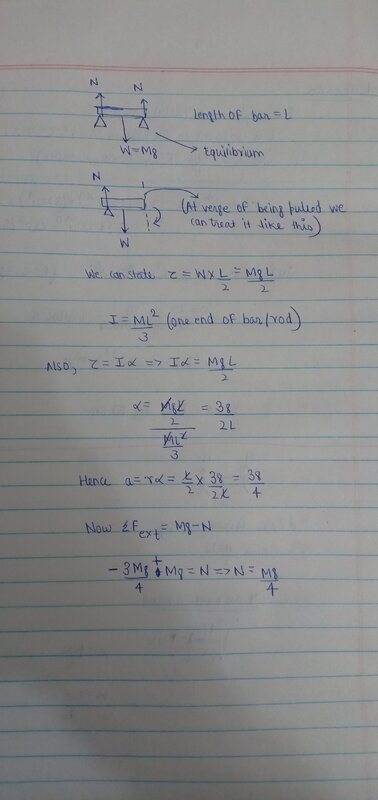 N N
Length of bar = L
W=Mg
Equilibrium
N
(At verge of being pulled we
can treat it like this)
W
We can state τ = W × L/2 = MgL/2
I = ML²/3 (one end of bar/rod)
Also, τ = Iα => Iα = MgL/2
α = (MgL/2)/(ML²/3) = 3g/2L
Hence a = rα = L/2 × 3g/2L = 3g/4
Now ΣFext = Mg-N
-3Mg/4 + Mg = N => N = Mg/4